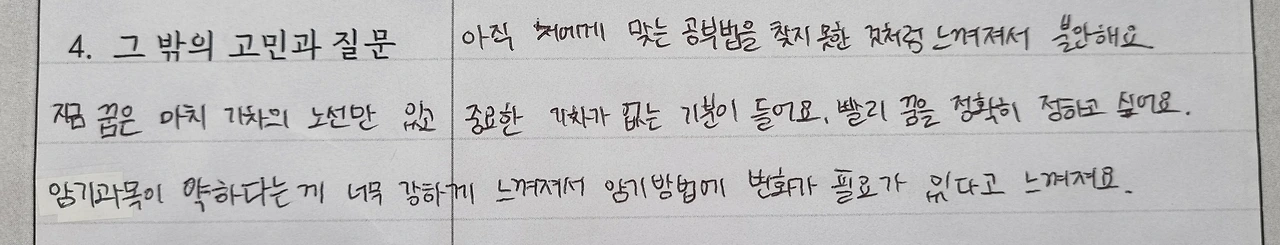 4. 그 밖의 고민과 질문 아직 저에게 맞는 공부법을 찾지 못한 것처럼 느껴져서 불안해요
지금 꿈은 마치 기차의 노선만 있고 중요한 기차가 없는 기분이 들어요. 빨리 꿈을 정확히 정하고 싶어요.
암기과목이 약하다는 게 너무 강하게 느껴져서 암기방법에 변화가 필요가 있다고 느껴져요.